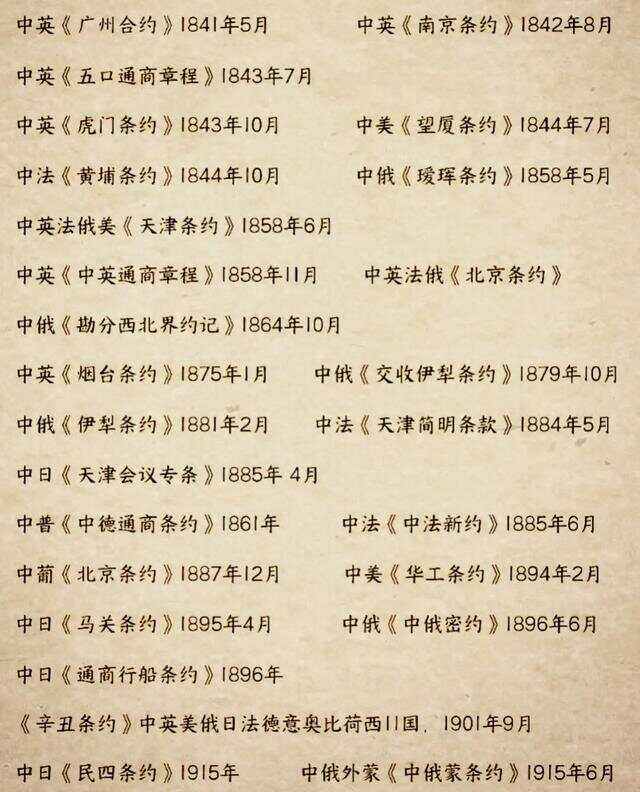 中英《广州合约》1841年5月 中英《南京条约》1842年8月
中英《五口通商章程》1843年7月
中英《虎门条约》1843年10月 中美《望厦条约》1844年7月
中法《黄埔条约》1844年10月 中俄《瑷珲条约》1858年5月
中英法俄美《天津条约》1858年6月
中英《中英通商章程》1858年11月 中英法俄《北京条约》
中俄《勘分西北界约记》1864年10月
中英《烟台条约》1875年1月 中俄《交收伊犁条约》1879年10月
中俄《伊犁条约》1881年2月 中法《天津简明条款》1884年5月
中日《天津会议专条》1885年 4月
中普《中德通商条约》1861年 中法《中法新约》1885年6月
中葡《北京条约》1887年12月 中美《华工条约》1894年2月
中日《马关条约》1895年4月 中俄《中俄密约》1896年6月
中日《通商行船条约》1896年
《辛丑条约》中英美俄日法德意奥比荷西11国，1901年9月
中日《民四条约》1915年 中俄外蒙《中俄蒙条约》1915年6月